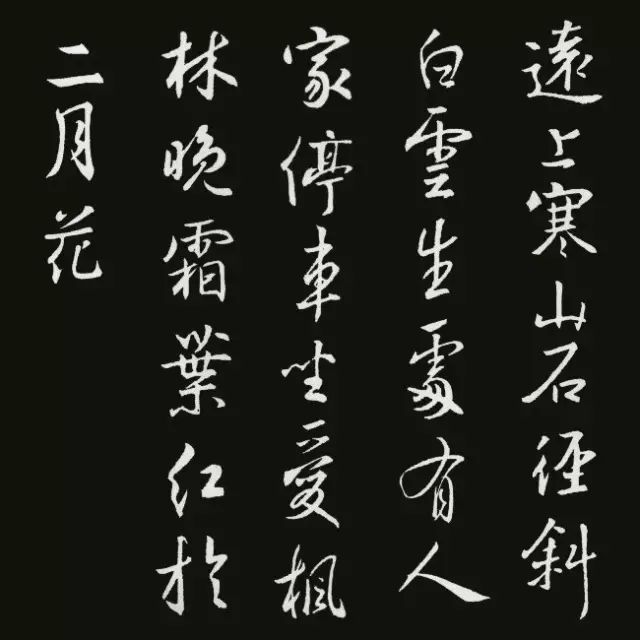 遠上寒山石径斜
白雲生處有人
家停車坐愛楓
林晚霜葉红於
二月花